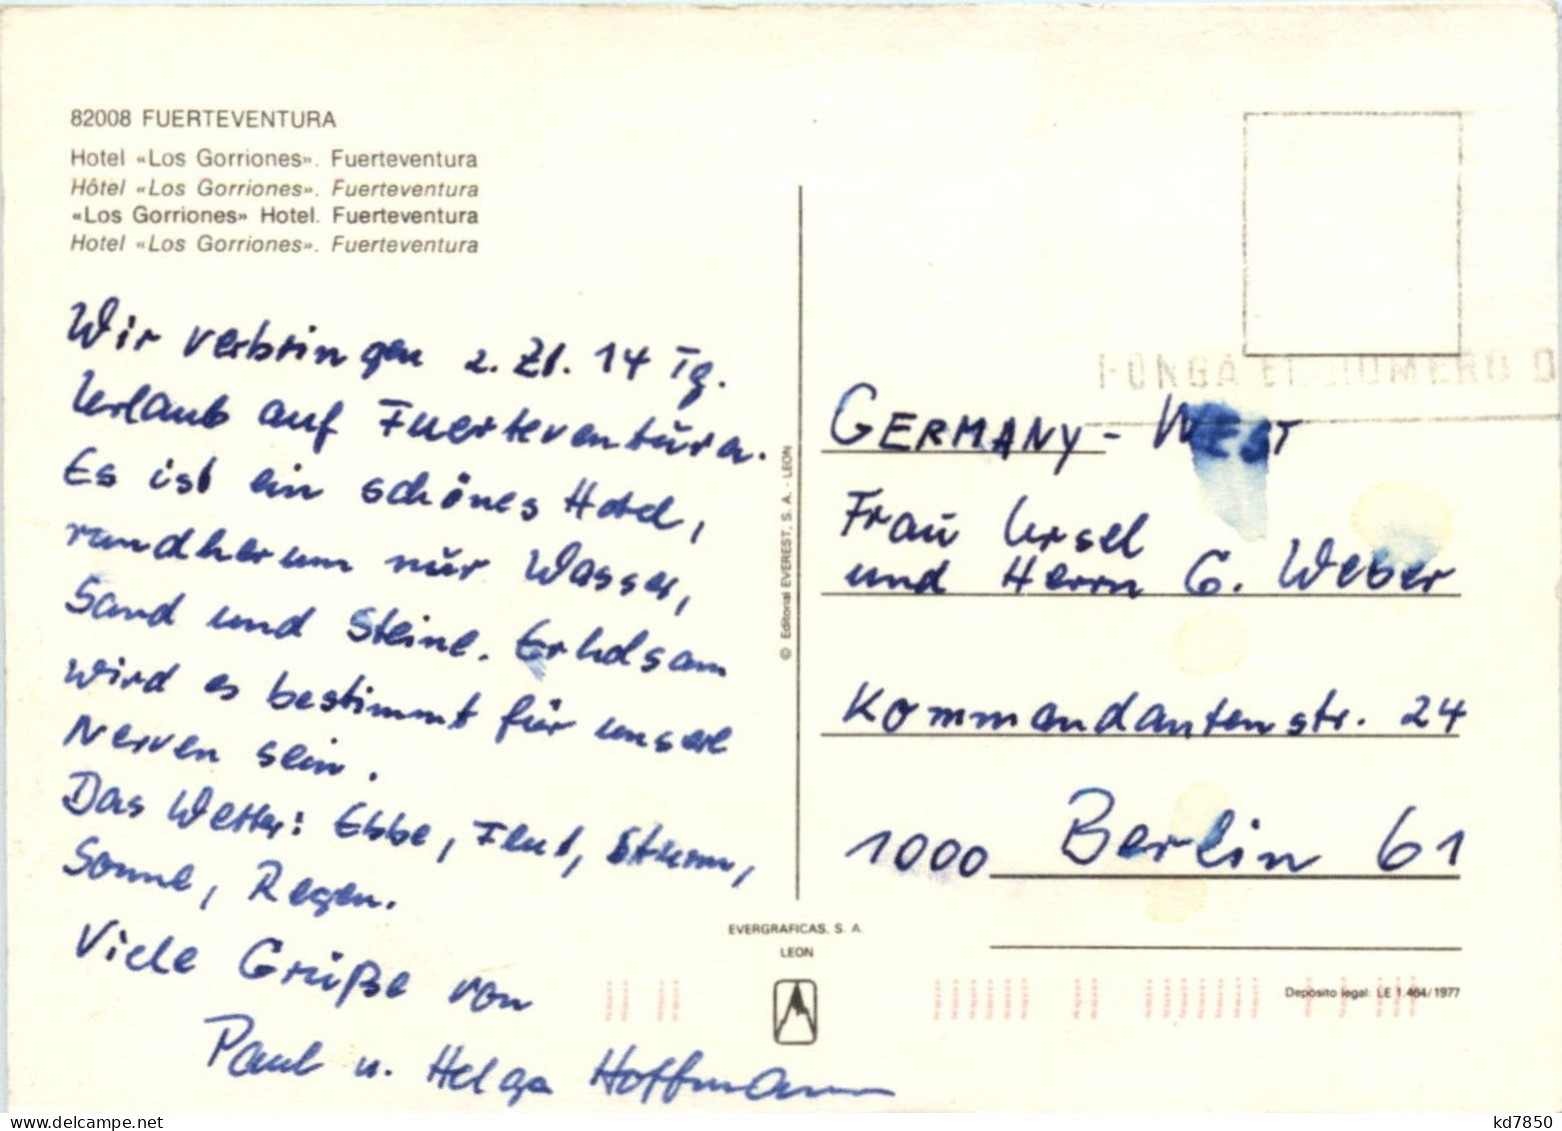 82008 FUERTEVENTURA
Hotel «Los Gorriones». Fuerteventura
Hôtel «Los Gorriones». Fuerteventura
«Los Gorriones» Hotel. Fuerteventura
Hotel «Los Gorriones». Fuerteventura
Wir verbringen z. Zt. 14 Tg.
Urlaub auf Fuerteventura.
Es ist ein schönes Hotel,
randherum nur Wasser,
Sand und Steine. Erholsam
wird es bestimmt für unsere
Nerven sein.
Das Wetter: Ebbe, Flut, Sturm,
Sonne, Regen.
Viele Grüße von
Paul u. Helga Hoffmann
© Editorial EVEREST, S. A. - LEON
EVERGRAFICAS, S. A.
LEON
PONGA EL NUMERO D
GERMANY - WEST
Frau Ursel
und Herrn G. Weber
Kommandantenstr. 24
1000 Berlin 61
Depósito legal: LE 1.464/1977
kd7850